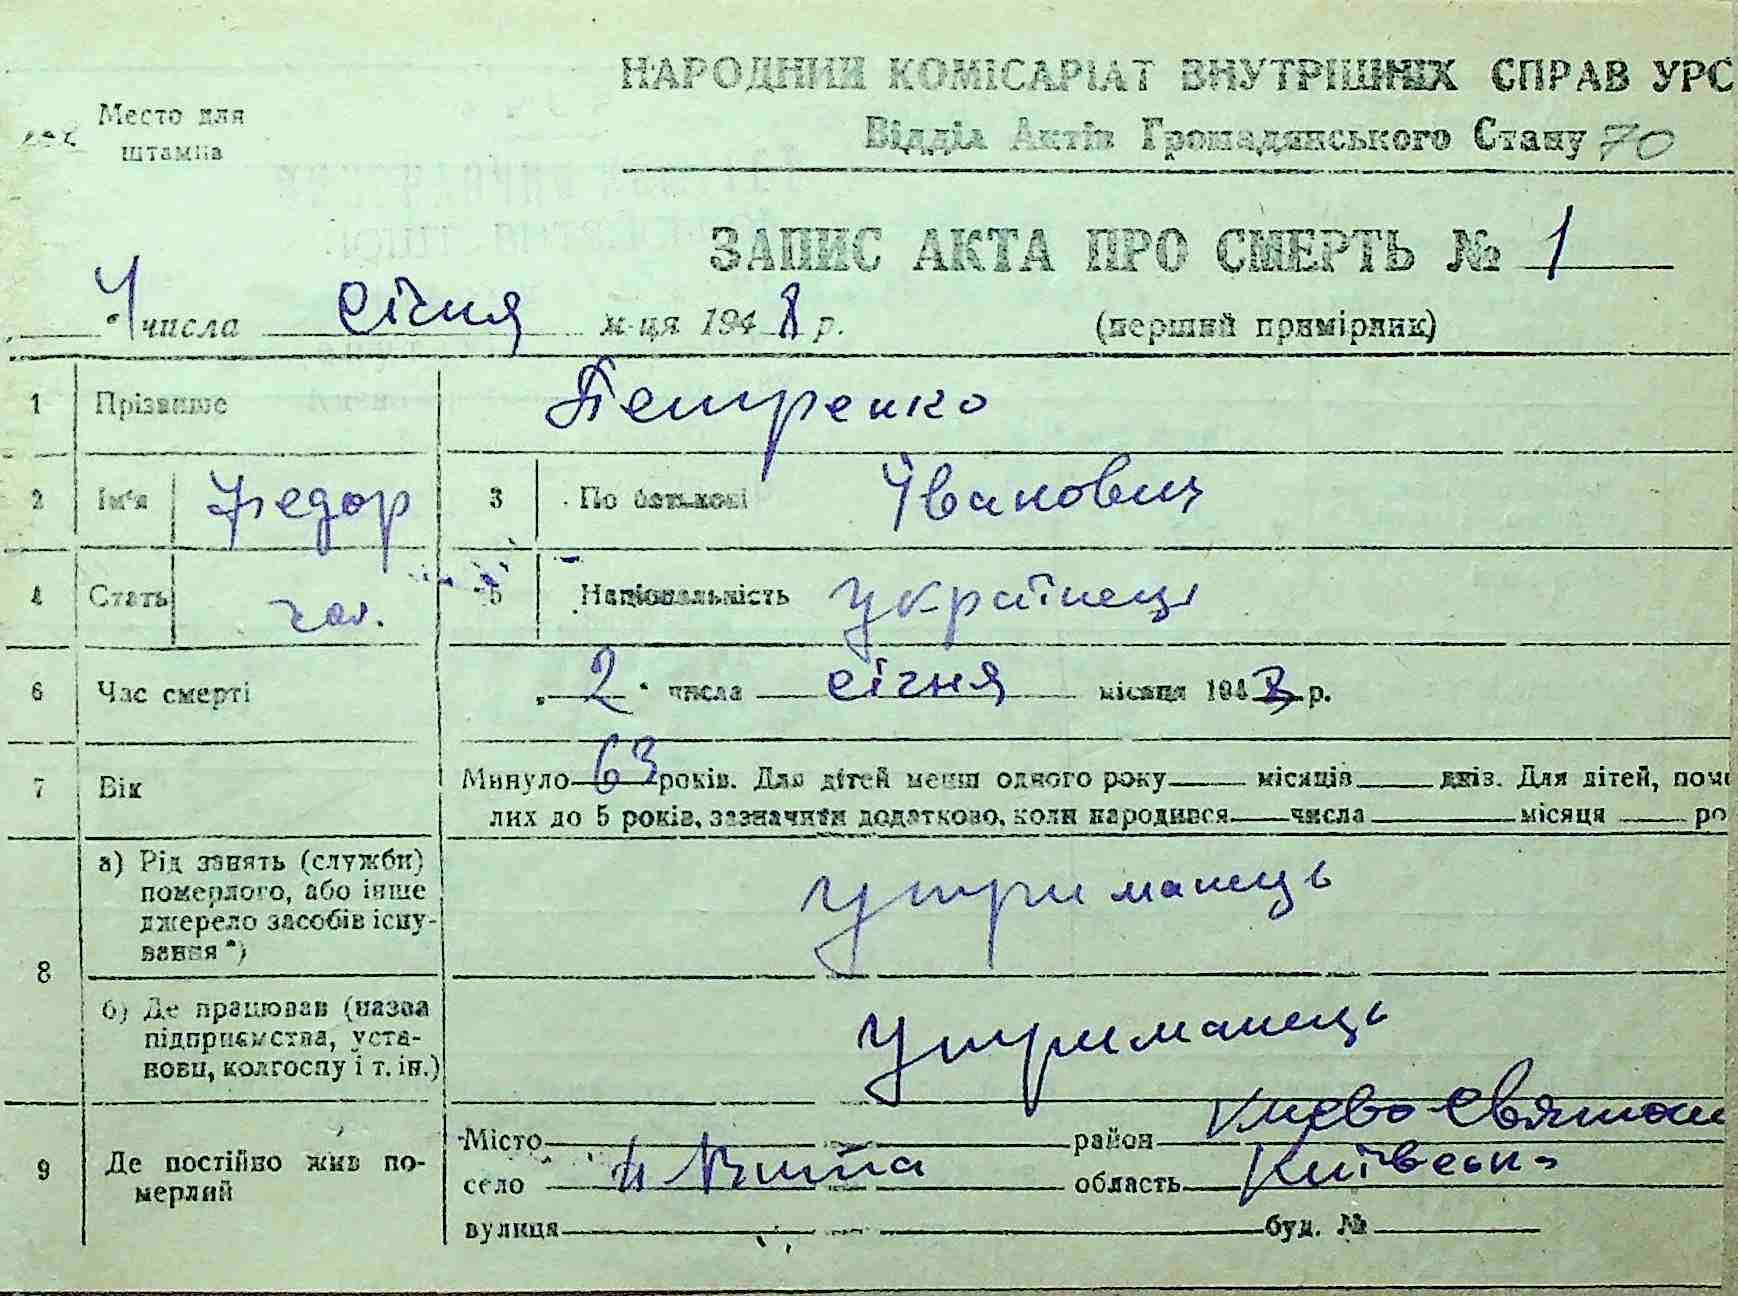 НАРОДНИЙ КОМІСАРІАТ ВНУТРІШНІХ СПРАВ УРС
Место для штампа
Відділ Актів Громадянського Стану 70
ЗАПИС АКТА ПРО СМЕРТЬ № 1
4 " числа січня м-ця 1948 р. (перший примірник)
1 Прізвище Петренко
2 Ім'я Федор 3 По батькові Іванович
4 Стать чол. 5 Національність українець
6 Час смерті „ 2 " числа січня місяця 194 р.
7 Вік Минуло 63 років. Для дітей менш одного року місяців днів. Для дітей, поме
лих до 5 років, зазначити додатково, коли народився числа місяця ро
8 а) Рід занять (служби)
померлого, або інше
джерело засобів існу-
вання *)
утриманець
б) Де працював (назва
підприємства, уста-
нови, колгоспу і т. ін.)
утриманець
9 Де постійно жив по-
мерлий
Місто район Києво Святош
село область Київська
вулиця буд. №